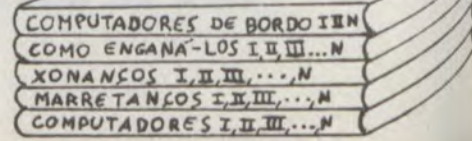 COMPUTADORES DE BORDO I II N
COMO ENGANÁ-LOS I, II, III...N
XONANÇOS I, II, III, ..., N
MARRETANÇOS I, II, III, ..., N
COMPUTADORES I, II, III, ..., N